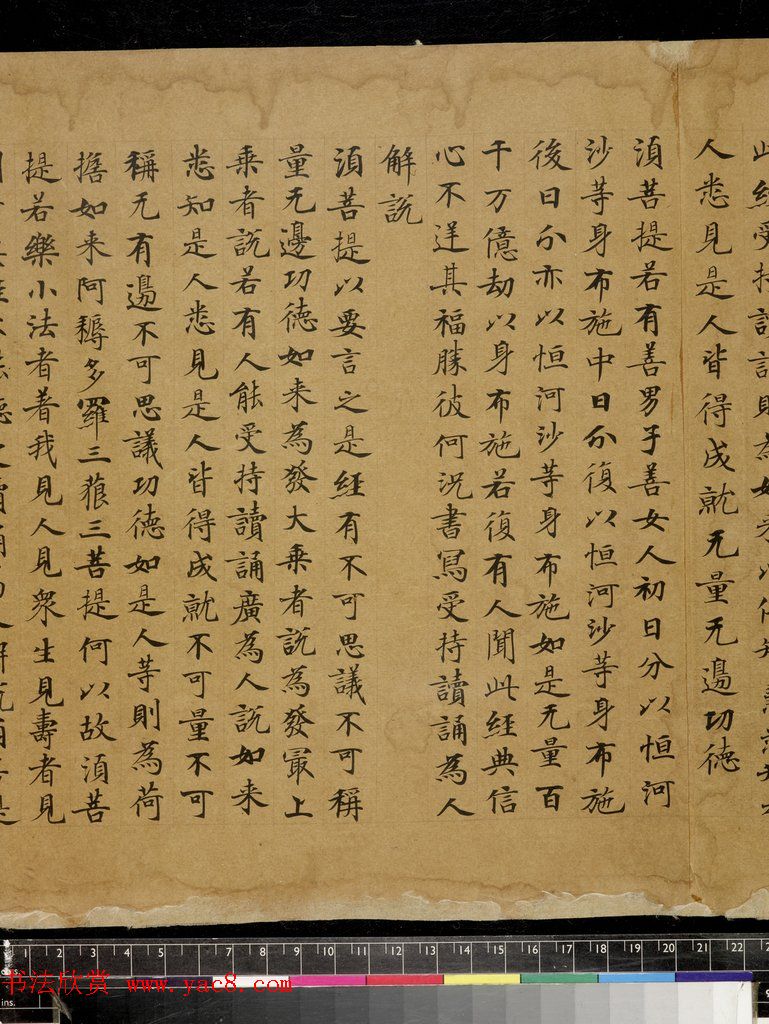 此經受持讀誦則為如来以佛智慧悉知是
人悉見是人皆得成就无量无邊功德
湏菩提若有善男子善女人初日分以恒河
沙等身布施中日分復以恒河沙等身布施
後日分亦以恒河沙等身布施如是无量百
千万億劫以身布施若復有人聞此經典信
心不逆其福勝彼何况書寫受持讀誦為人
解説
湏菩提以要言之是經有不可思議不可稱
量无邊功德如来為發大乗者説為發冣上
乗者説若有人能受持讀誦廣為人説如来
悉知是人悉見是人皆得成就不可量不可
稱无有邊不可思議功德如是人等則為荷
擔如来阿耨多羅三藐三菩提何以故湏菩
提若樂小法者著我見人見衆生見壽者見
書法欣赏 www.yac8.com
1 2 3 4 5 7 8 9 10 11 12 13 14 15 16 17 18 19 20 21 22
ins.